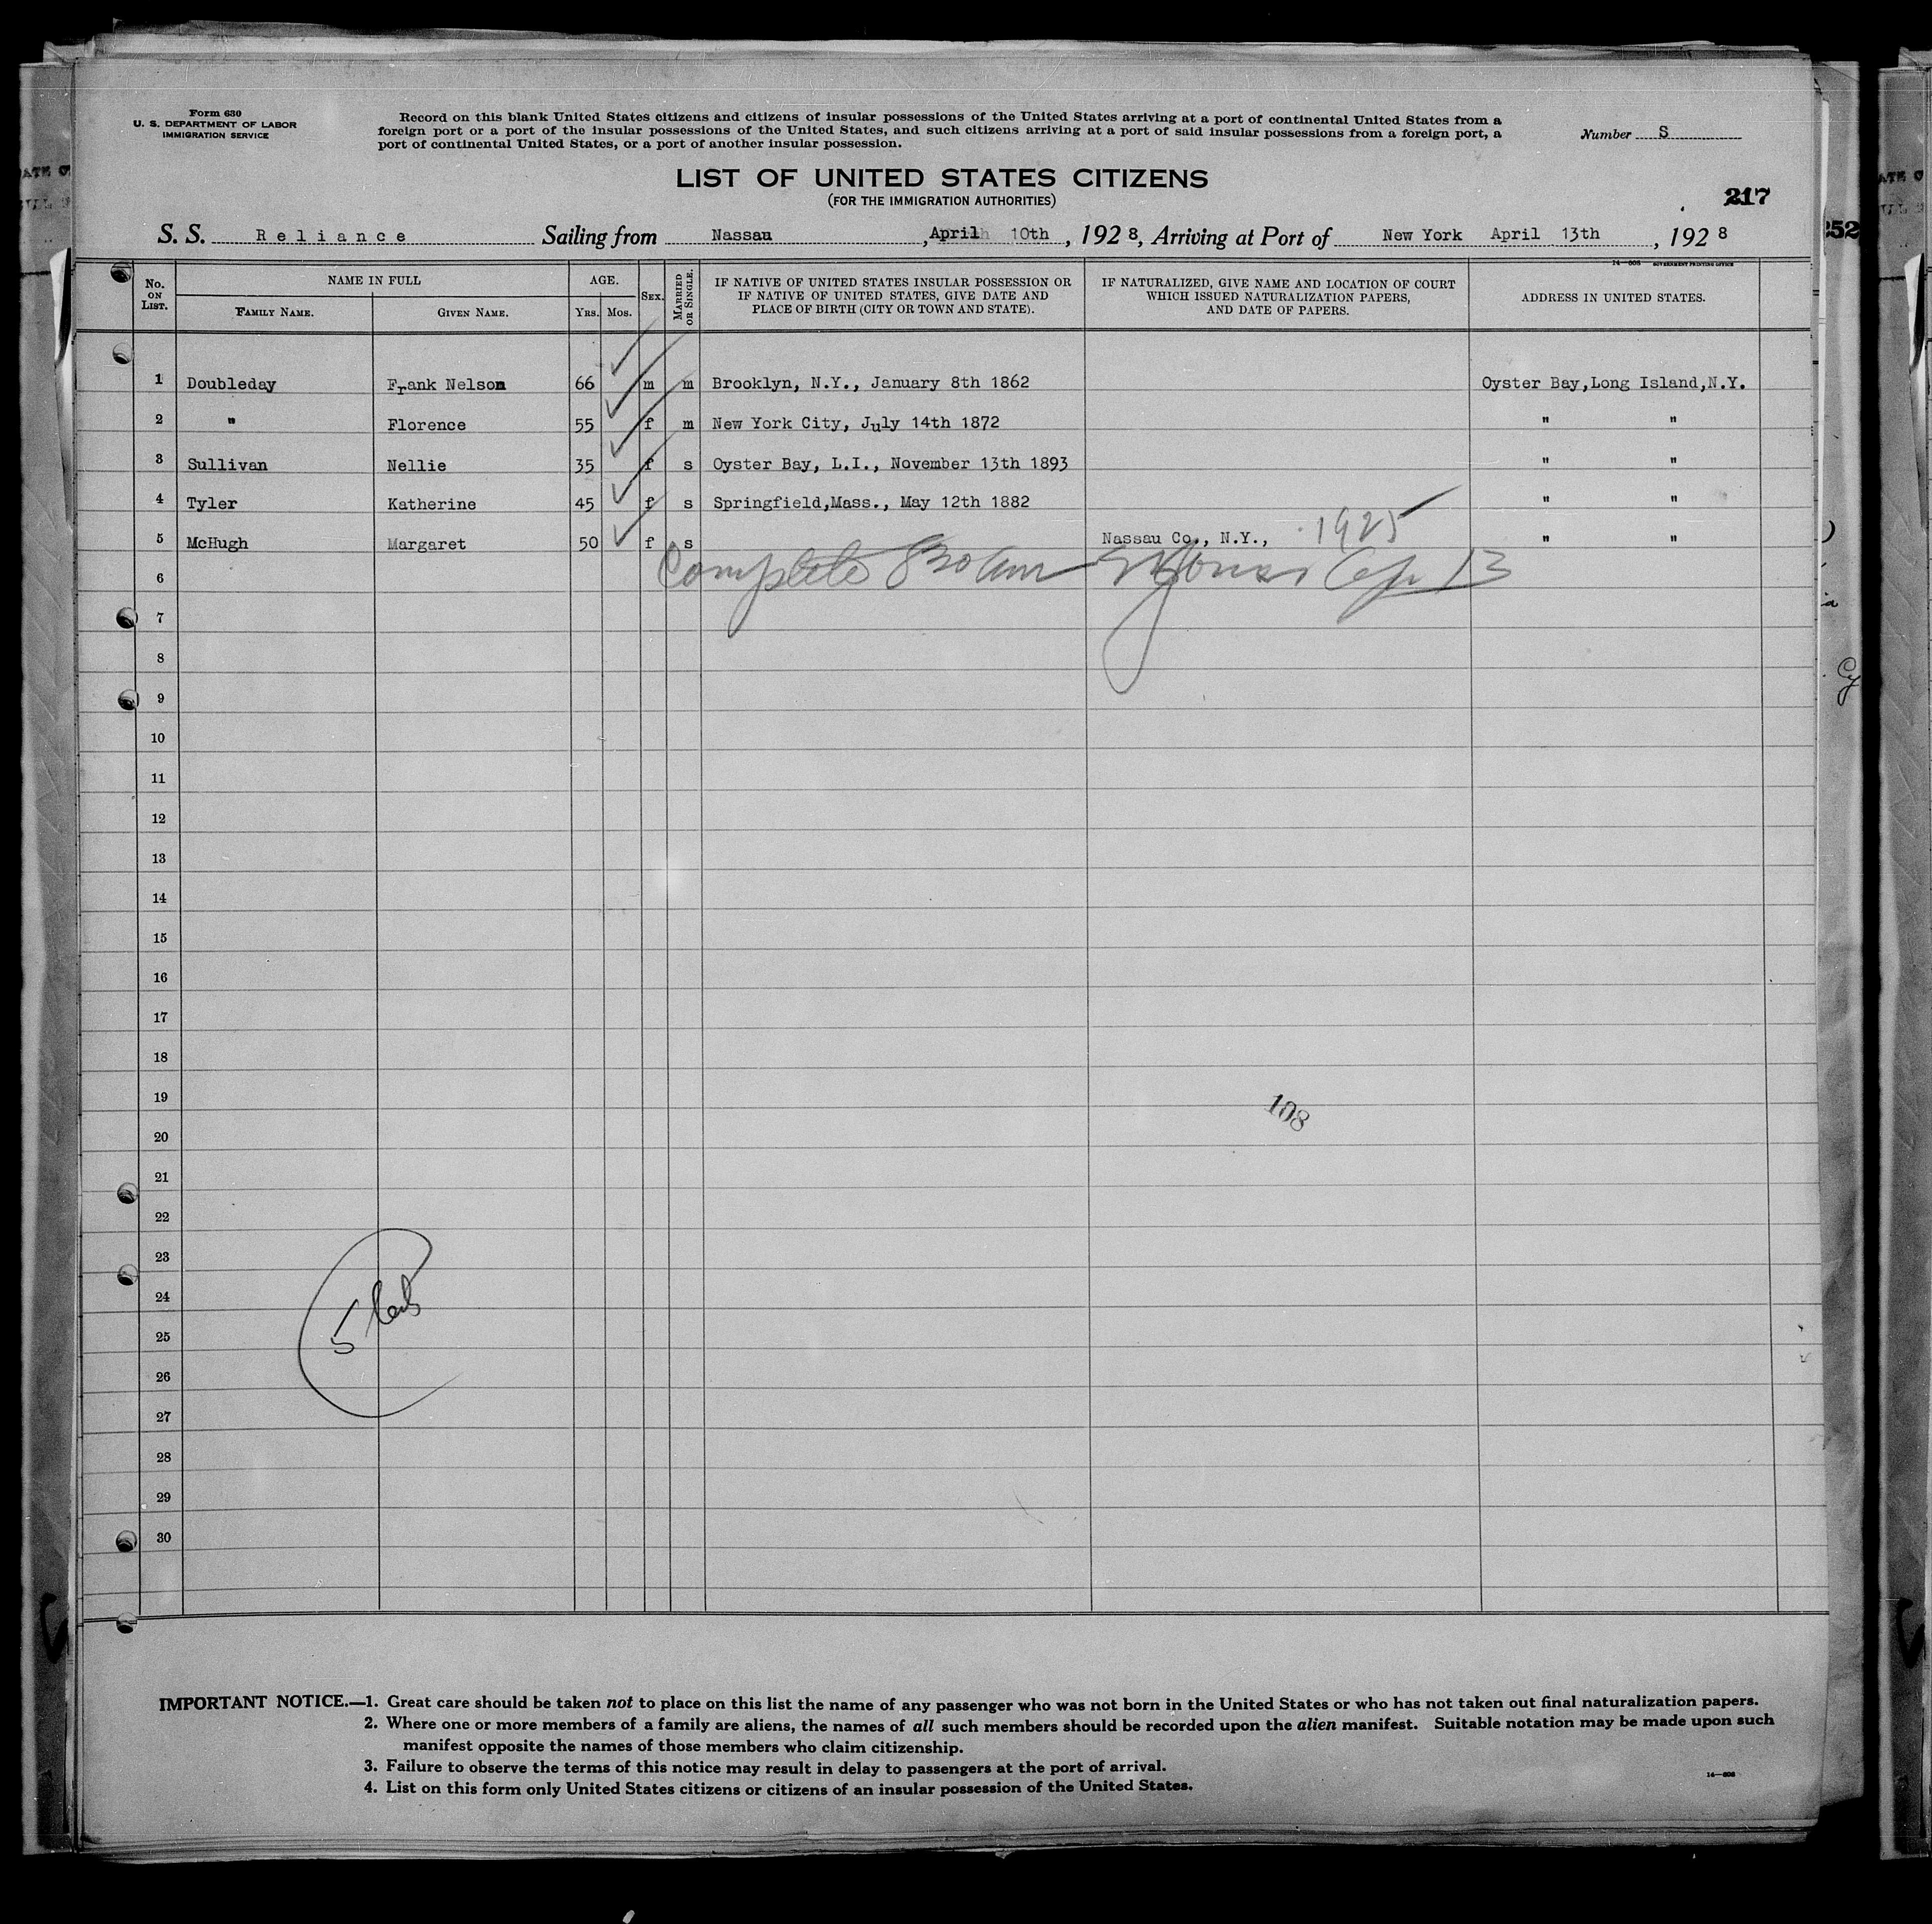 Form 630
U. S. DEPARTMENT OF LABOR
IMMIGRATION SERVICE
Record on this blank United States citizens and citizens of insular possessions of the United States arriving at a port of continental United States from a
foreign port or a port of the insular possessions of the United States, and such citizens arriving at a port of said insular possessions from a foreign port, a
port of continental United States, or a port of another insular possession.
Number S
LIST OF UNITED STATES CITIZENS
(FOR THE IMMIGRATION AUTHORITIES)
217
S. S. Reliance Sailing from Nassau, April 10th, 1928, Arriving at Port of New York April 13th, 1928
14—608 GOVERNMENT PRINTING OFFICE
No. ON LIST. NAME IN FULL FAMILY NAME. GIVEN NAME. AGE. YRS. MOS. SEX. MARRIED OR SINGLE. IF NATIVE OF UNITED STATES INSULAR POSSESSION OR IF NATIVE OF UNITED STATES, GIVE DATE AND PLACE OF BIRTH (CITY OR TOWN AND STATE). IF NATURALIZED, GIVE NAME AND LOCATION OF COURT WHICH ISSUED NATURALIZATION PAPERS, AND DATE OF PAPERS. ADDRESS IN UNITED STATES.
1 Doubleday Frank Nelson 66 m m Brooklyn, N.Y., January 8th 1862 Oyster Bay,Long Island,N.Y.
2 " Florence 55 f m New York City, July 14th 1872 " "
3 Sullivan Nellie 35 f s Oyster Bay, L.I., November 13th 1893 " "
4 Tyler Katherine 45 f s Springfield,Mass., May 12th 1882 " "
5 McHugh Margaret 50 f s Nassau Co., N.Y., 1925 " "
6 Complete 13
7
8
9
10
11
12
13
14
15
16
17
18
19 108
20
21
22
23
24
25 5
26
27
28
29
30
IMPORTANT NOTICE.—1. Great care should be taken not to place on this list the name of any passenger who was not born in the United States or who has not taken out final naturalization papers.
2. Where one or more members of a family are aliens, the names of all such members should be recorded upon the alien manifest. Suitable notation may be made upon such
manifest opposite the names of those members who claim citizenship.
3. Failure to observe the terms of this notice may result in delay to passengers at the port of arrival.
4. List on this form only United States citizens or citizens of an insular possession of the United States.
14—608
252